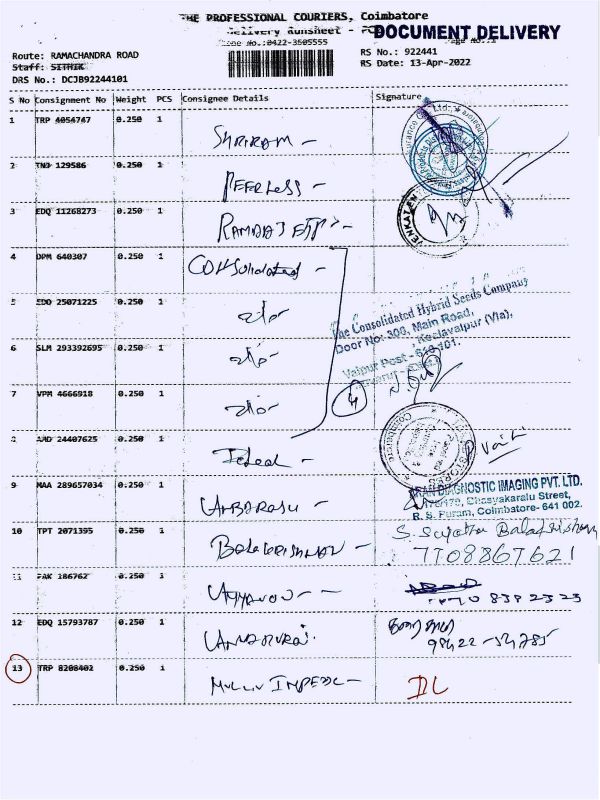 THE PROFESSIONAL COURIERS, Coimbatore
Delivery Runsheet -
DOCUMENT DELIVERY
Phone No.:0422-3505555
Route: RAMACHANDRA ROAD
RS No.: 922441
Staff: SITHIK
RS Date: 13-Apr-2022
DRS No.: DCJB92244101
S No Consignment No Weight PCS Consignee Details Signature
1 TRP 4054767 0.250 1 SHRIRAM -
2 TNJ 129586 0.250 1 PEERLESS -
3 EDQ 11268273 0.250 1
4 DPM 640307 0.250 1 Consolidated -
The Consolidated Hybrid Seeds Company
Door No: 300, Main Road,
Keelavalpur (Via),
5 EDQ 25071225 0.250 1
6 SLM 293392695 0.250 1
7 VPM 4666918 0.250 1
4
8 AMD 24407625 0.250 1 Ideal -
9 MAA 289657034 0.250 1 UANBARASU -
ARAN DIAGNOSTIC IMAGING PVT. LTD.
Bhasyakaralu Street,
R. S. Puram, Coimbatore- 641 002.
10 TPT 2071395 0.250 1 BALAKRISHNAN -
S. Sujatha Balakrishnan
7708867621
11 PAK 186762 0.250 1
12 EDQ 15793787 0.250 1
98422-54785
13 TRP 8208402 0.250 1
DL